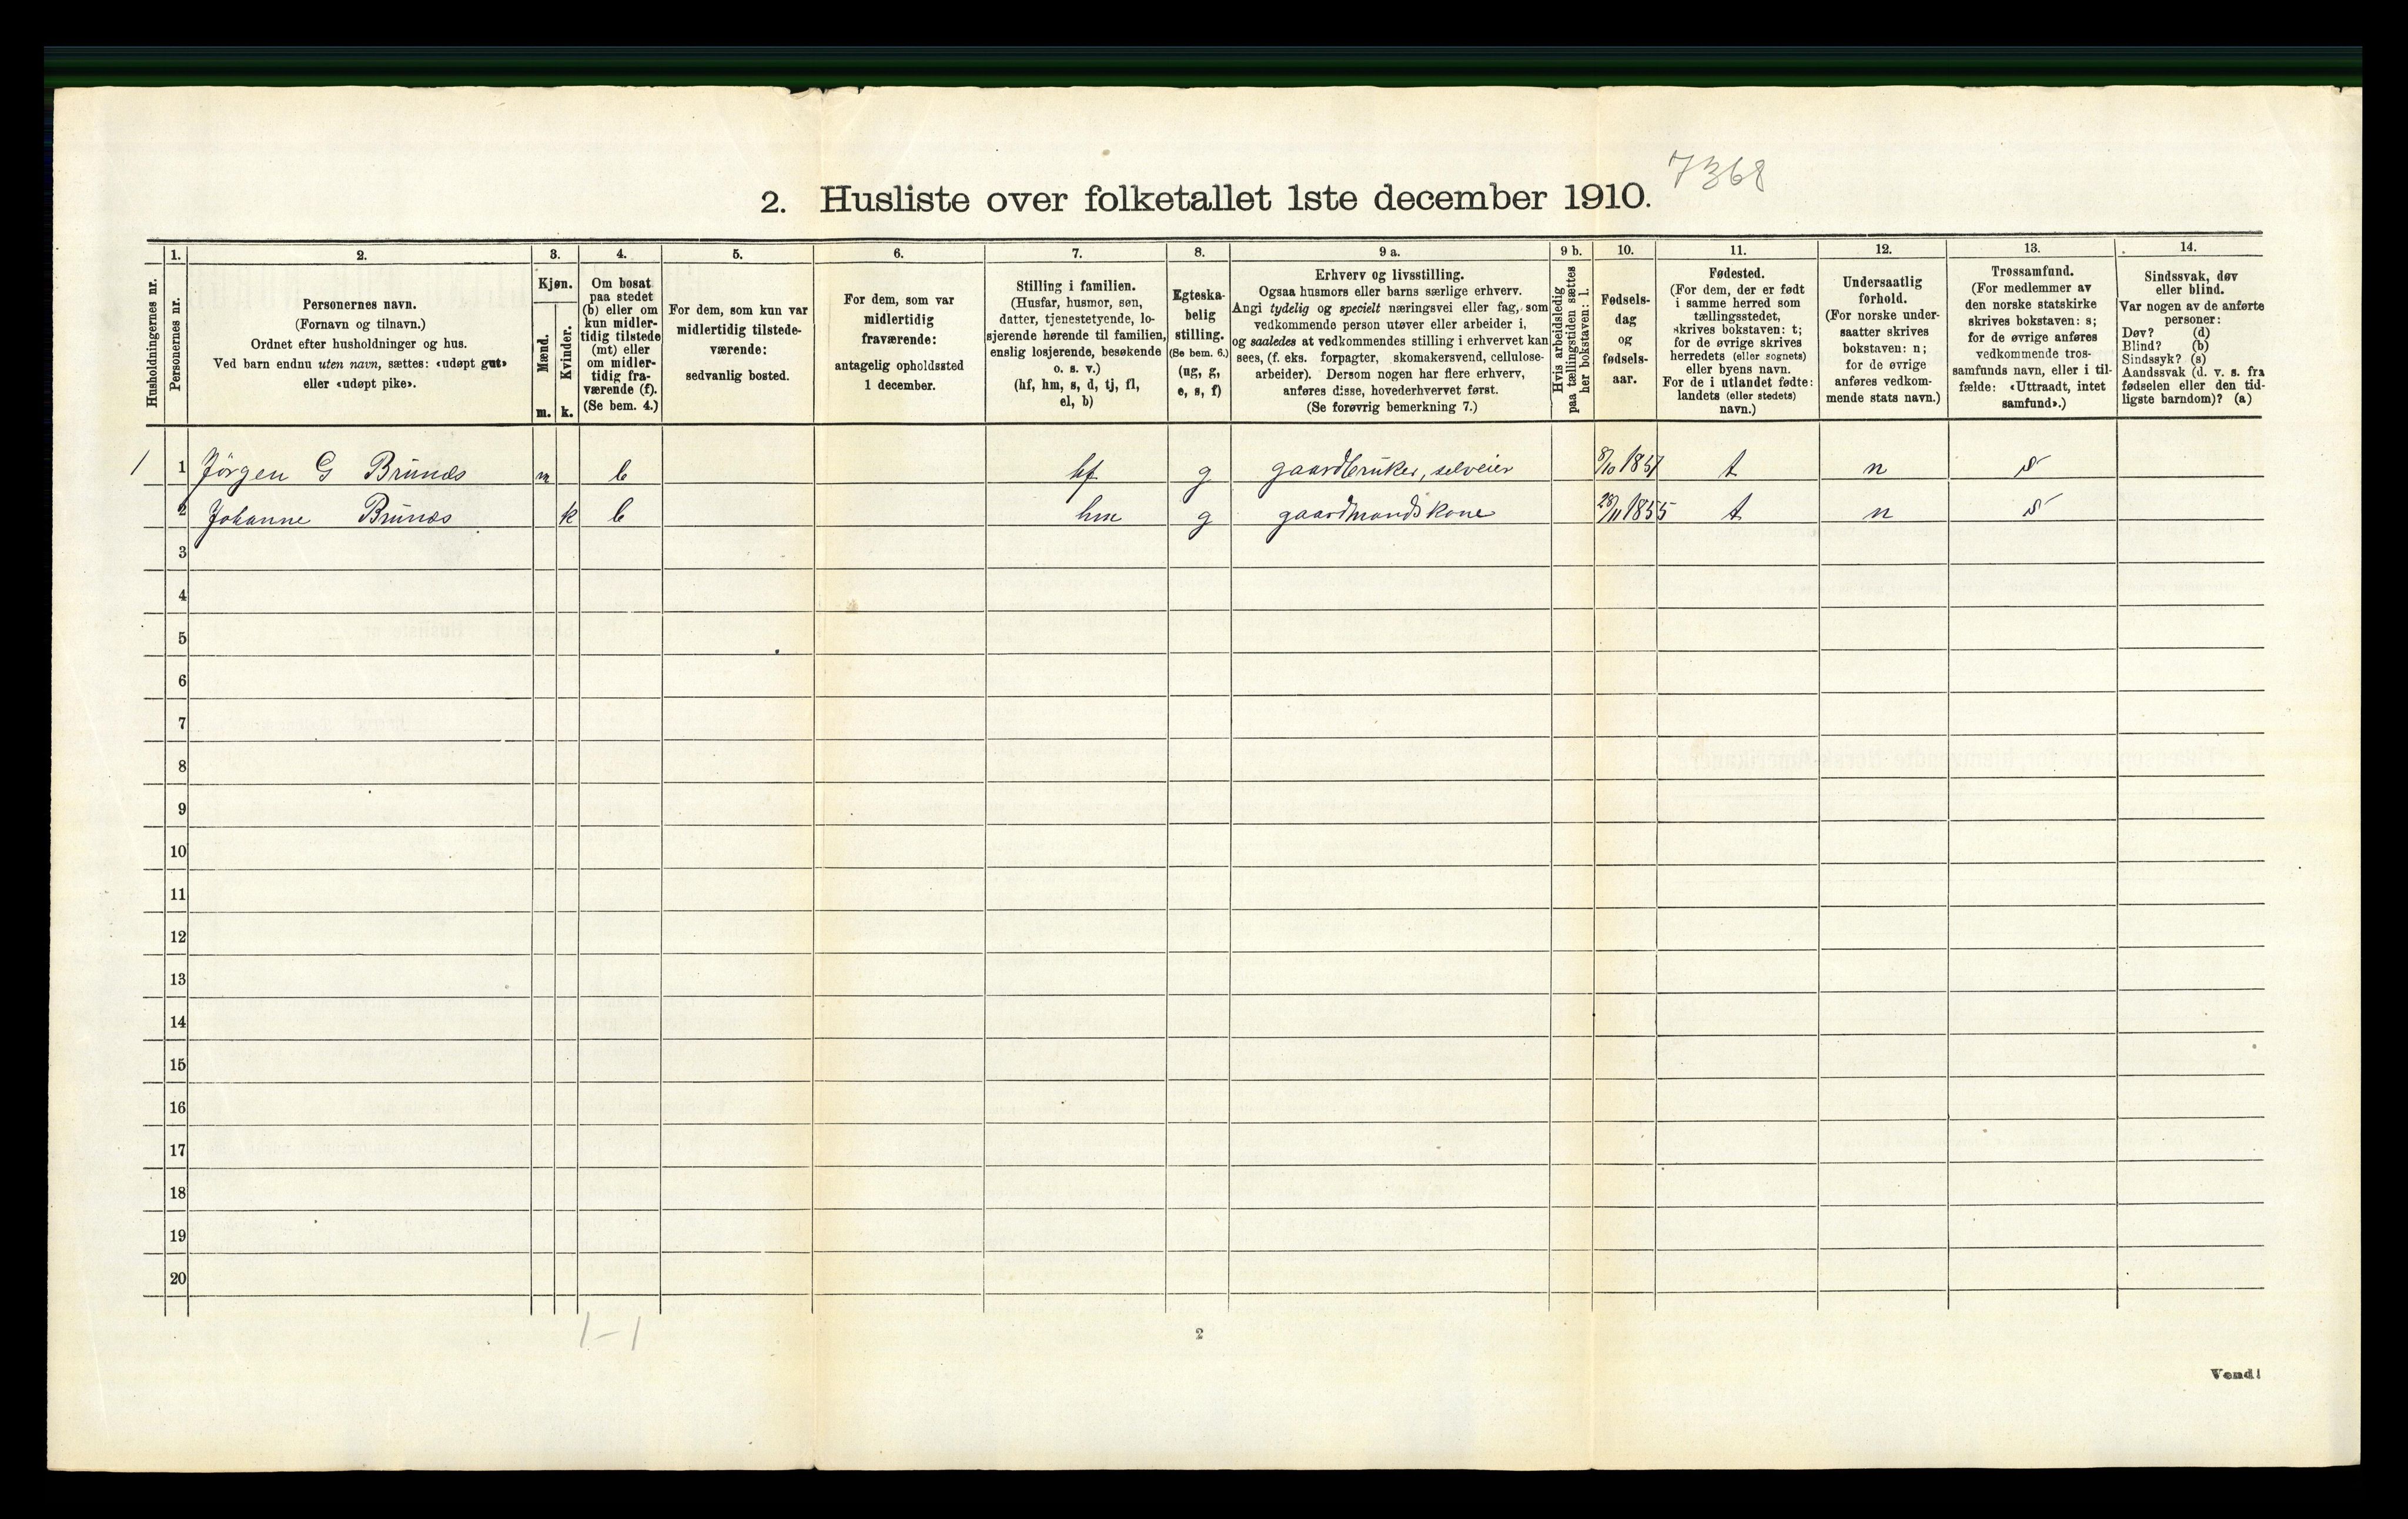 7368
2. Husliste over folketallet 1ste december 1910.
Husholdningernes nr.
1.
Personernes nr.
2.
Personernes navn.
(Fornavn og tilnavn.)
Ordnet efter husholdninger og hus.
Ved barn endnu uten navn, sættes: «udøpt gut»
eller «udøpt pike».
3.
Kjøn.
Mænd.
Kvinder.
m. k.
4.
Om bosat
paa stedet
(b) eller om
kun midler-
tidig tilstede
(mt) eller
om midler-
tidig fra-
værende (f).
(Se bem. 4.)
5.
For dem, som kun var
midlertidig tilstede-
værende:
sedvanlig bosted.
6.
For dem, som var
midlertidig
fraværende:
antagelig opholdssted
1 december.
7.
Stilling i familien.
(Husfar, husmor, søn,
datter, tjenestetyende, lo-
sjerende hørende til familien,
enslig losjerende, besøkende
o. s. v.)
(hf, hm, s, d, tj, fl,
el, b)
8.
Egteska-
belig
stilling.
(Se bem. 6.)
(ug, g,
e, s, f)
9 a.
Erhverv og livsstilling.
Ogsaa husmors eller barns særlige erhverv.
Angi tydelig og specielt næringsvei eller fag, som
vedkommende person utøver eller arbeider i,
og saaledes at vedkommendes stilling i erhvervet kan
sees, (f. eks. forpagter, skomakersvend, cellulose-
arbeider). Dersom nogen har flere erhverv,
anføres disse, hovederhvervet først.
(Se forøvrig bemerkning 7.)
9 b.
Hvis arbeidsledig
paa tællingstiden sættes
her bokstaven: l.
10.
Fødsels-
dag
og
fødsels-
aar.
11.
Fødested.
(For dem, der er født
i samme herred som
tællingsstedet,
skrives bokstaven: t;
for de øvrige skrives
herredets (eller sognets)
eller byens navn.
For de i utlandet fødte:
landets (eller stedets)
navn.)
12.
Undersaatlig
forhold.
(For norske under-
saatter skrives
bokstaven: n;
for de øvrige
anføres vedkom-
mende stats navn.)
13.
Trossamfund.
(For medlemmer av
den norske statskirke
skrives bokstaven: s;
for de øvrige anføres
vedkommende tros-
samfunds navn, eller i til-
fælde: «Uttraadt, intet
samfund».)
14.
Sindssvak, døv
eller blind.
Var nogen av de anførte
personer:
Døv? (d)
Blind? (b)
Sindssyk? (s)
Aandssvak (d. v. s. fra
fødselen eller den tid-
ligste barndom)? (a)
1 1 Jörgen G Brunæs m b hf g gaardbruker, selveier 1851 t n s
2 Johanne Brunæs k b hm g gaardmandskone 28/11 1855 t n s
3
4
5
6
7
8
9
10
11
12
13
14
15
16
17
18
19
20
1-1
2
Vend!